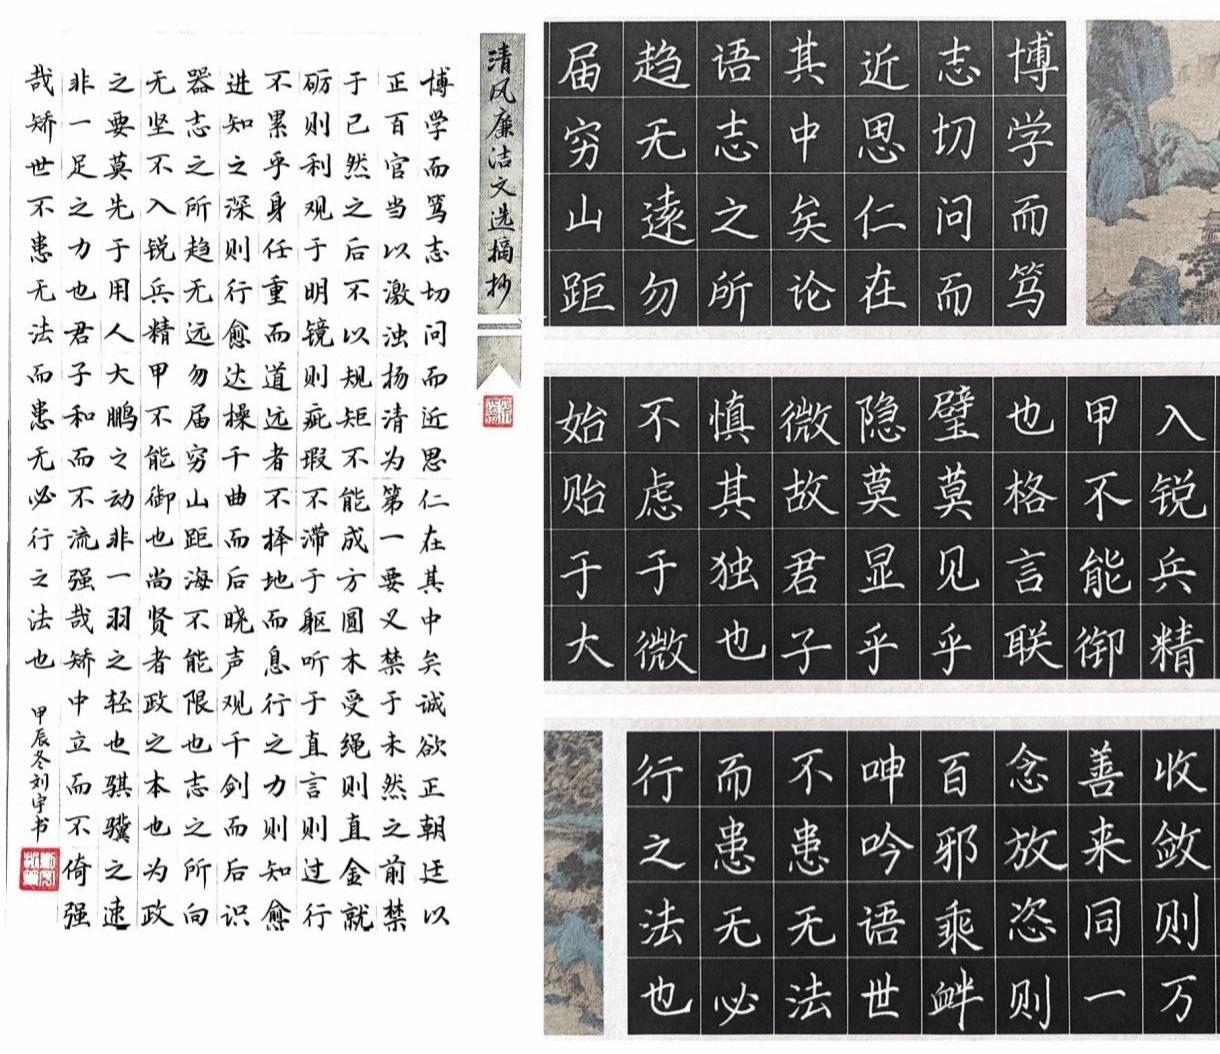 清风廉洁文选摘抄
博学而笃志切问而近思仁在其中矣诚欲正朝廷以
正百官当以激浊扬清为第一要又禁于未然之前禁
于已然之后不以规矩不能成方圆木受绳则直金就
砺则利观于明镜则疵瑕不滞于躯听于直言则过行
不累乎身任重而道远者不择地而息行之力则知愈
进知之深则行愈达操千曲而后晓声观千剑而后识
器志之所趋无远勿届穷山距海不能限也志之所向
无坚不入锐兵精甲不能御也尚贤者政之本也为政
之要莫先于用人大鹏之动非一羽之轻也骐骥之速
非一足之力也君子和而不流强哉矫中立而不倚强
哉矫世不患无法而患无必行之法也 甲辰冬刘宇书
博学而笃
志切问而
近思仁在
其中矣论
语志之所
趋无遠勿
届穷山距
入锐兵精
甲不能御
也格言联
璧莫见乎
隐莫显乎
微故君子
慎其独也
不虑于微
始贻于大
收敛则万
善来同一
念放恣则
百邪乘衅
呻吟语世
不患无法
而患无必
行之法也